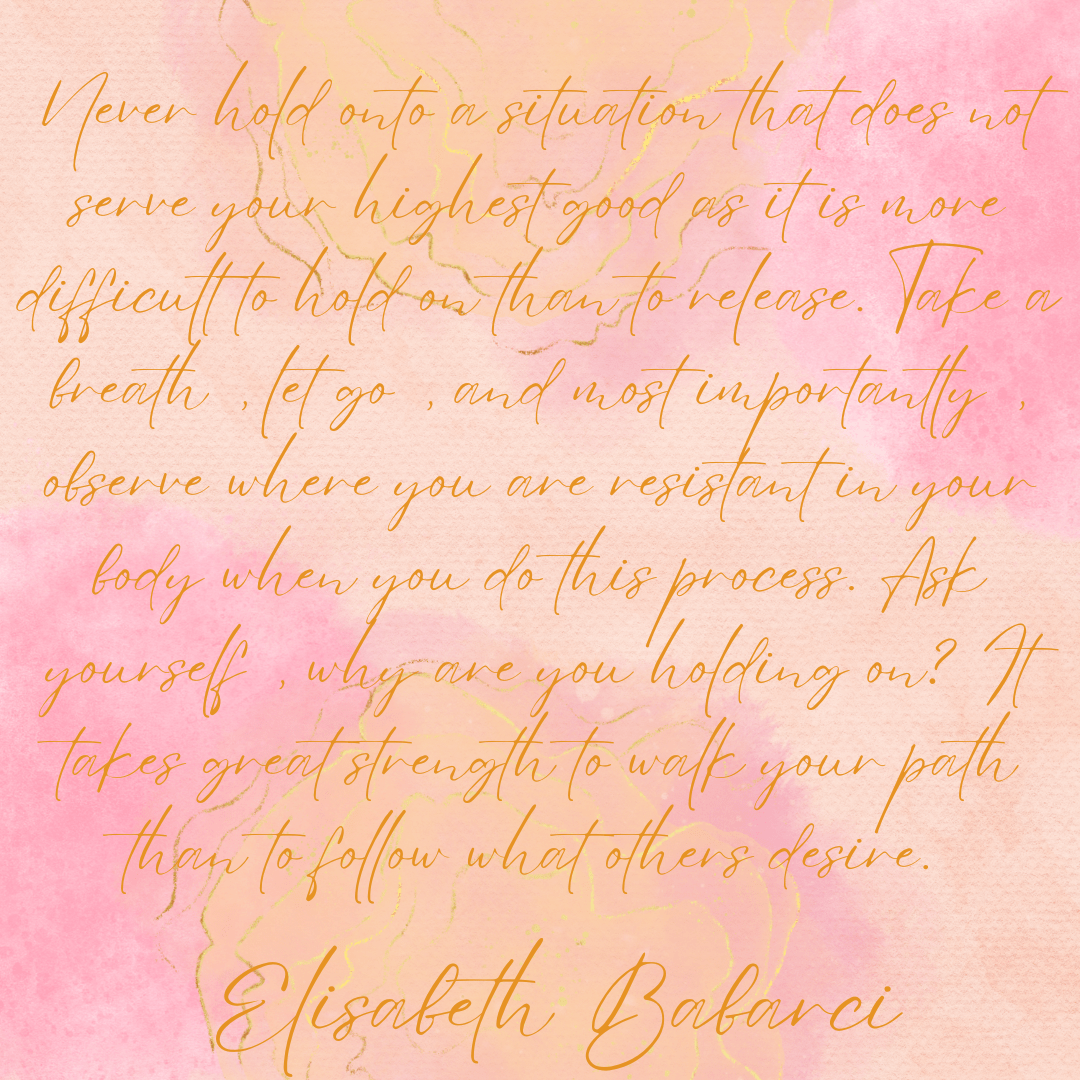 Never hold onto a situation that does not
serve your highest good as it is more
difficult to hold on than to release. Take a
breath , let go , and most importantly ,
observe where you are resistant in your
body when you do this process. Ask
yourself , why are you holding on? It
takes great strength to walk your path
than to follow what others desire.
Elisabeth Babarci